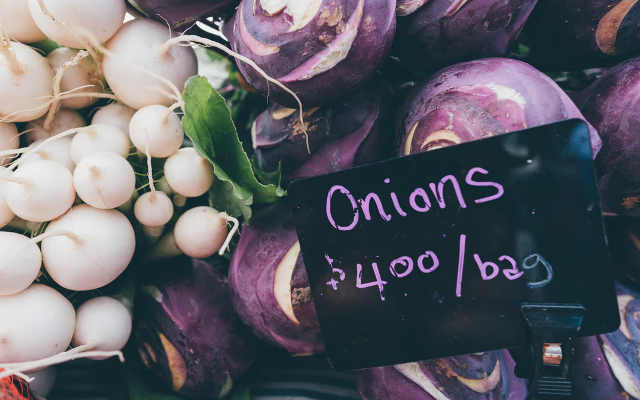 Onions
$400/bag